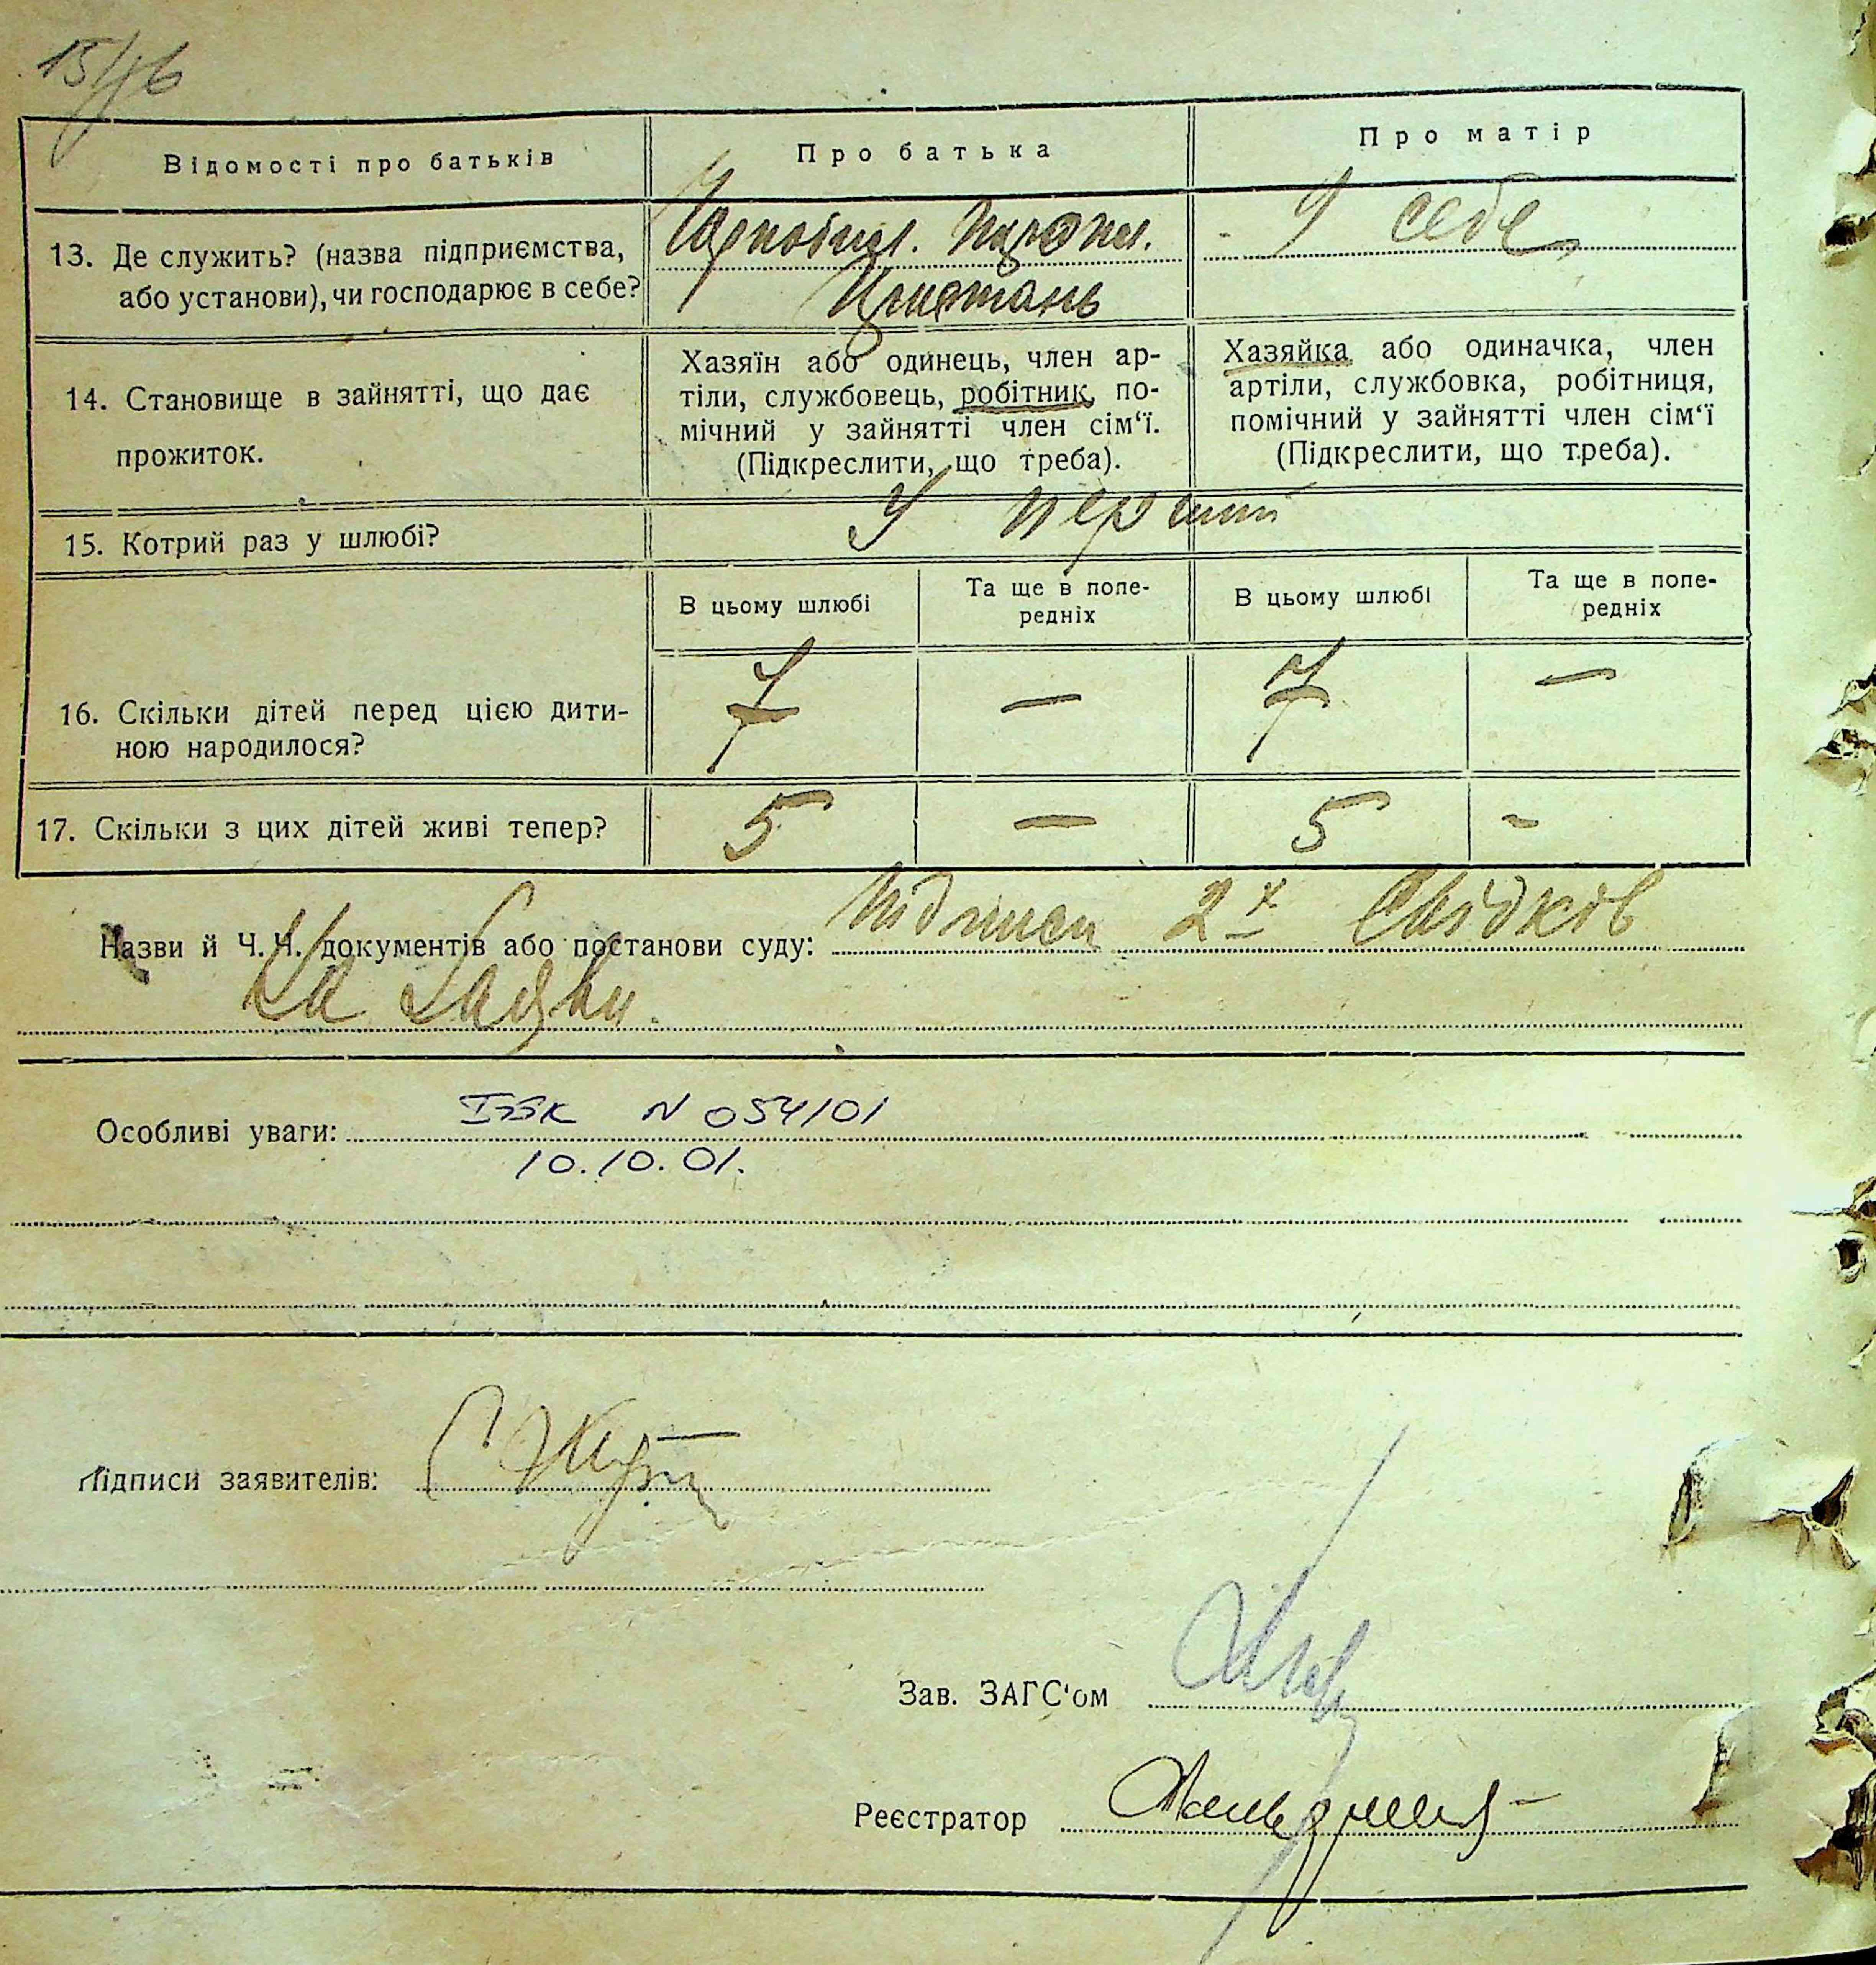 15/46
Відомості про батьків
Про батька
Про матір
13. Де служить? (назва підприємства,
або установи), чи господарює в себе?
У себе
14. Становище в зайнятті, що дає
прожиток.
Хазяїн або одинець, член ар-
тіли, службовець, робітник, по-
мічний у зайнятті член сім'ї.
(Підкреслити, що треба).
Хазяйка або одиначка, член
артіли, службовка, робітниця,
помічний у зайнятті член сім'ї
(Підкреслити, що треба).
15. Котрий раз у шлюбі?
У перший
В цьому шлюбі
Та ще в попе-
редніх
В цьому шлюбі
Та ще в попе-
редніх
16. Скільки дітей перед цією дити-
ною народилося?
7 — 7 —
17. Скільки з цих дітей живі тепер?
5 — 5 -
Назви й Ч.Ч. документів або постанови суду: Підписи 2х Свідків
Особливі уваги: N 054101
10.10.01.
Підписи заявителів:
Зав. ЗАГС'ом
Реєстратор